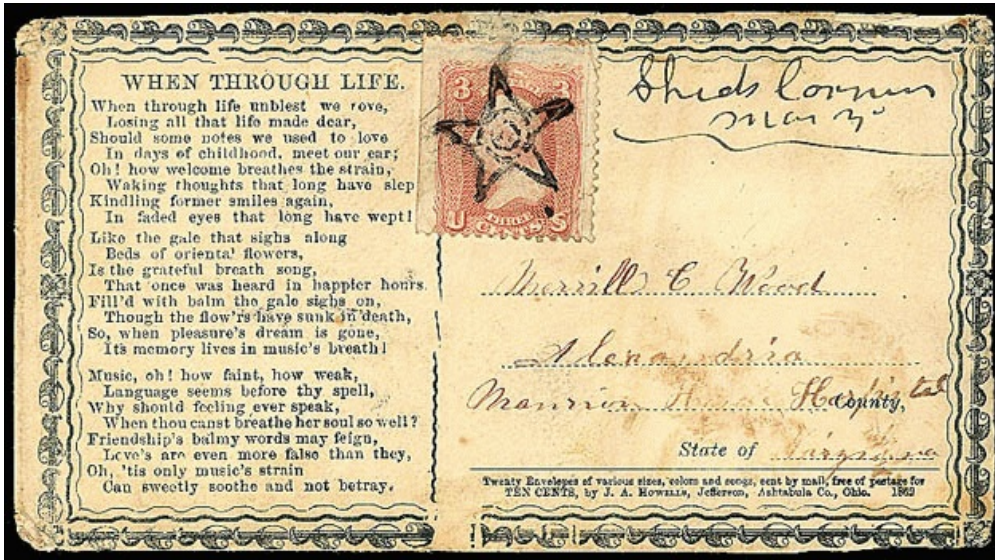 WHEN THROUGH LIFE.
When through life unblest we rove,
Losing all that life made dear,
Should some notes we used to love
In days of childhood, meet our ear;
Oh! how welcome breathes the strain,
Waking thoughts that long have slep
Kindling former smiles again,
In faded eyes that long have wept!
Like the gale that sighs along
Beds of oriental flowers,
Is the grateful breath song,
That once was heard in happier hours.
Fill'd with balm the gale sighs on,
Though the flow'rs have sunk in death,
So, when pleasure's dream is gone,
Its memory lives in music's breath!
Music, oh! how faint, how weak,
Language seems before thy spell,
Why should feeling ever speak,
When thou canst breathe her soul so well?
Friendship's balmy words may feign,
Love's are even more false than they,
Oh, 'tis only music's strain
Can sweetly soothe and not betray.
3 3
U THREE S
CENTS
Sheds Corners
Mar
Merrills C Wood
Alexandria
Mansion House Hospital
County,
State of Virginia
Twenty Envelopes of various sizes, colors and songs, sent by mail, free of postage for
TEN CENTS, by J. A. HOWELLS, Jefferson, Ashtabula Co., Ohio. 1862